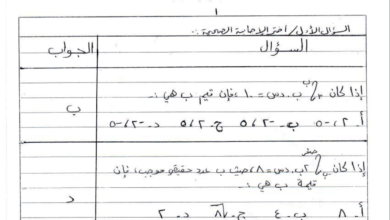 ١
السؤال الأول / اختر الإجابة الصحيحة :-
السؤال
الجواب
إذا كان ٣∫ب ب. دس = ١٠ ، فإن قيم ب هي :-
ب
أ. ٢، -٥ ب. -٢، ٥ ج. ٢، ٥ د. -٢، -٥
إذا كان ∫صفر ٢ب. دس = ٨، حيث ب عدد حقيقي موجب، فإن
قيمة ب هي :-
د
أ. ٨ ب. ٤ ج. ٨√ د. ٢